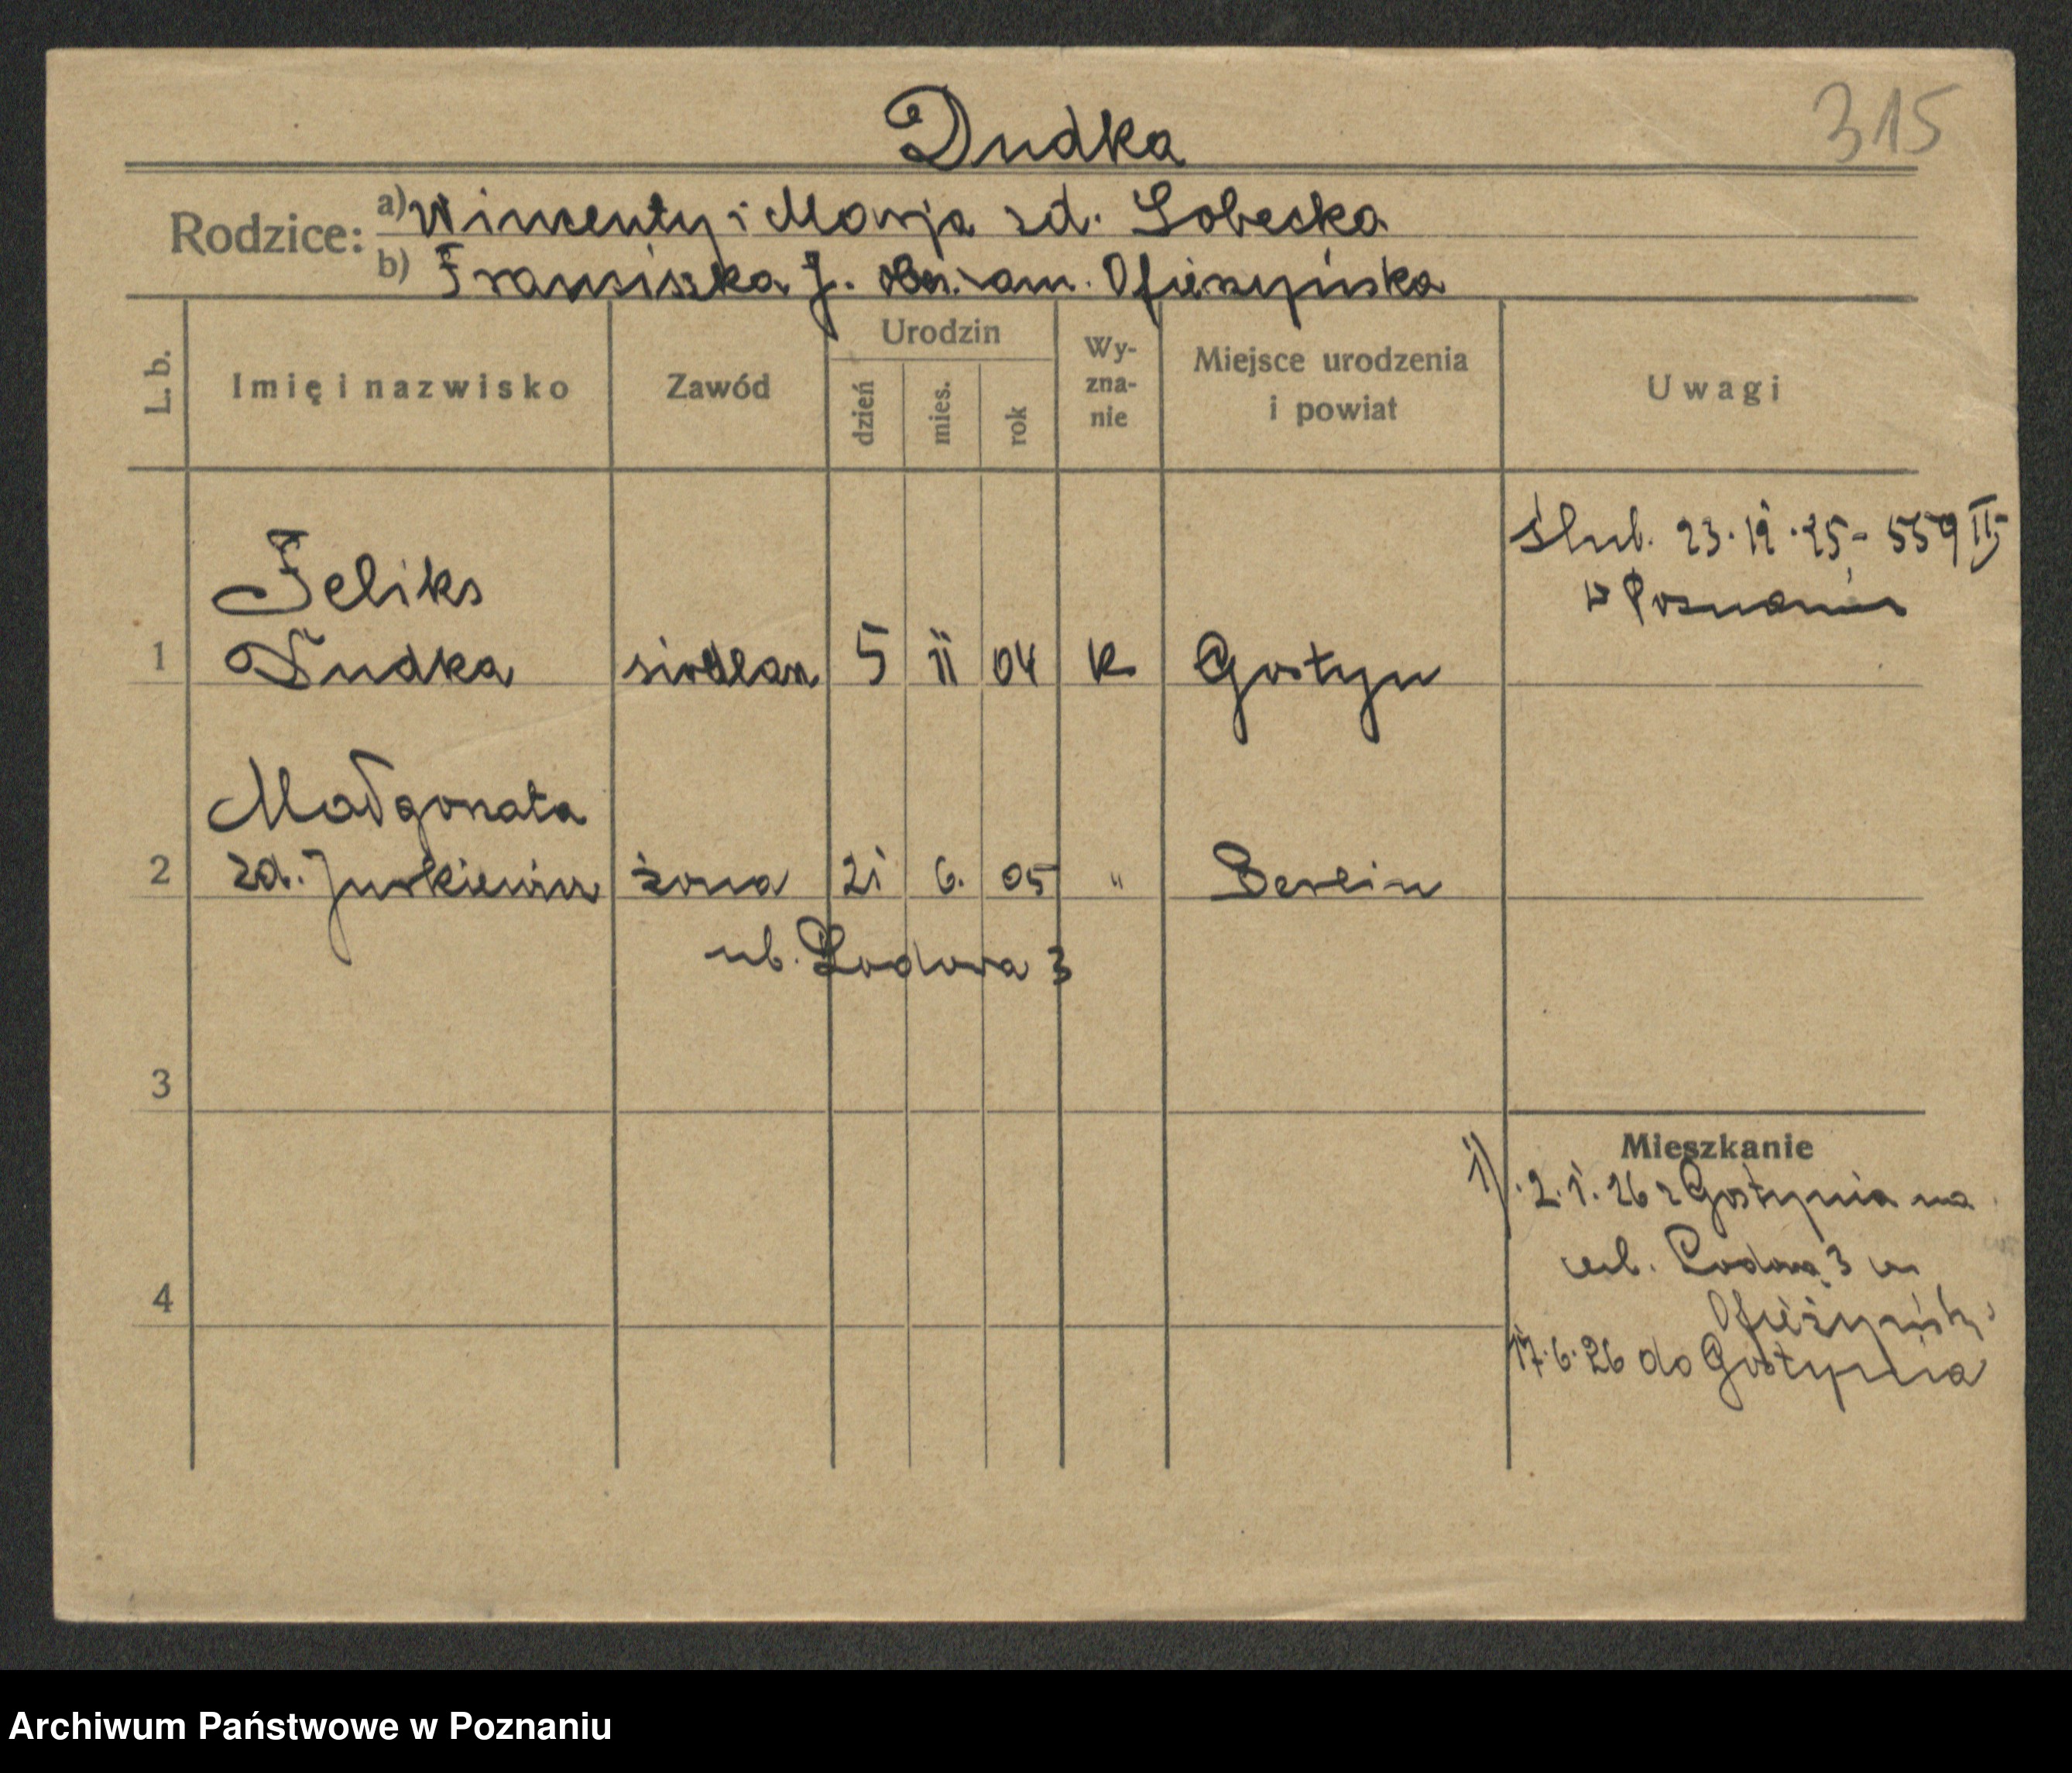 315
Dudka
Rodzice: a) Wincenty i Marja zd. Sobecka
b) Franciszka J. zam. Ofierzyńska
L. b.
Imię i nazwisko
Zawód
Urodzin
dzień
mies.
rok
Wy-
zna-
nie
Miejsce urodzenia
i powiat
Uwagi
ślub. 23.12.25 - 559 III
w Poznaniu
Feliks
1 Dudka siodlarz 5 11 04 k Gostyn
Małgorzata
2 zd. Jurkiewicz żona 21 6. 05 " Berlin
ul. Lodowa 3
3
Mieszkanie
1) 2.1.26 z Gostynia na
ul. Lodową 3 u
4
Ofierzyńsk.
17.6.26 do Gostynia
Archiwum Państwowe w Poznaniu